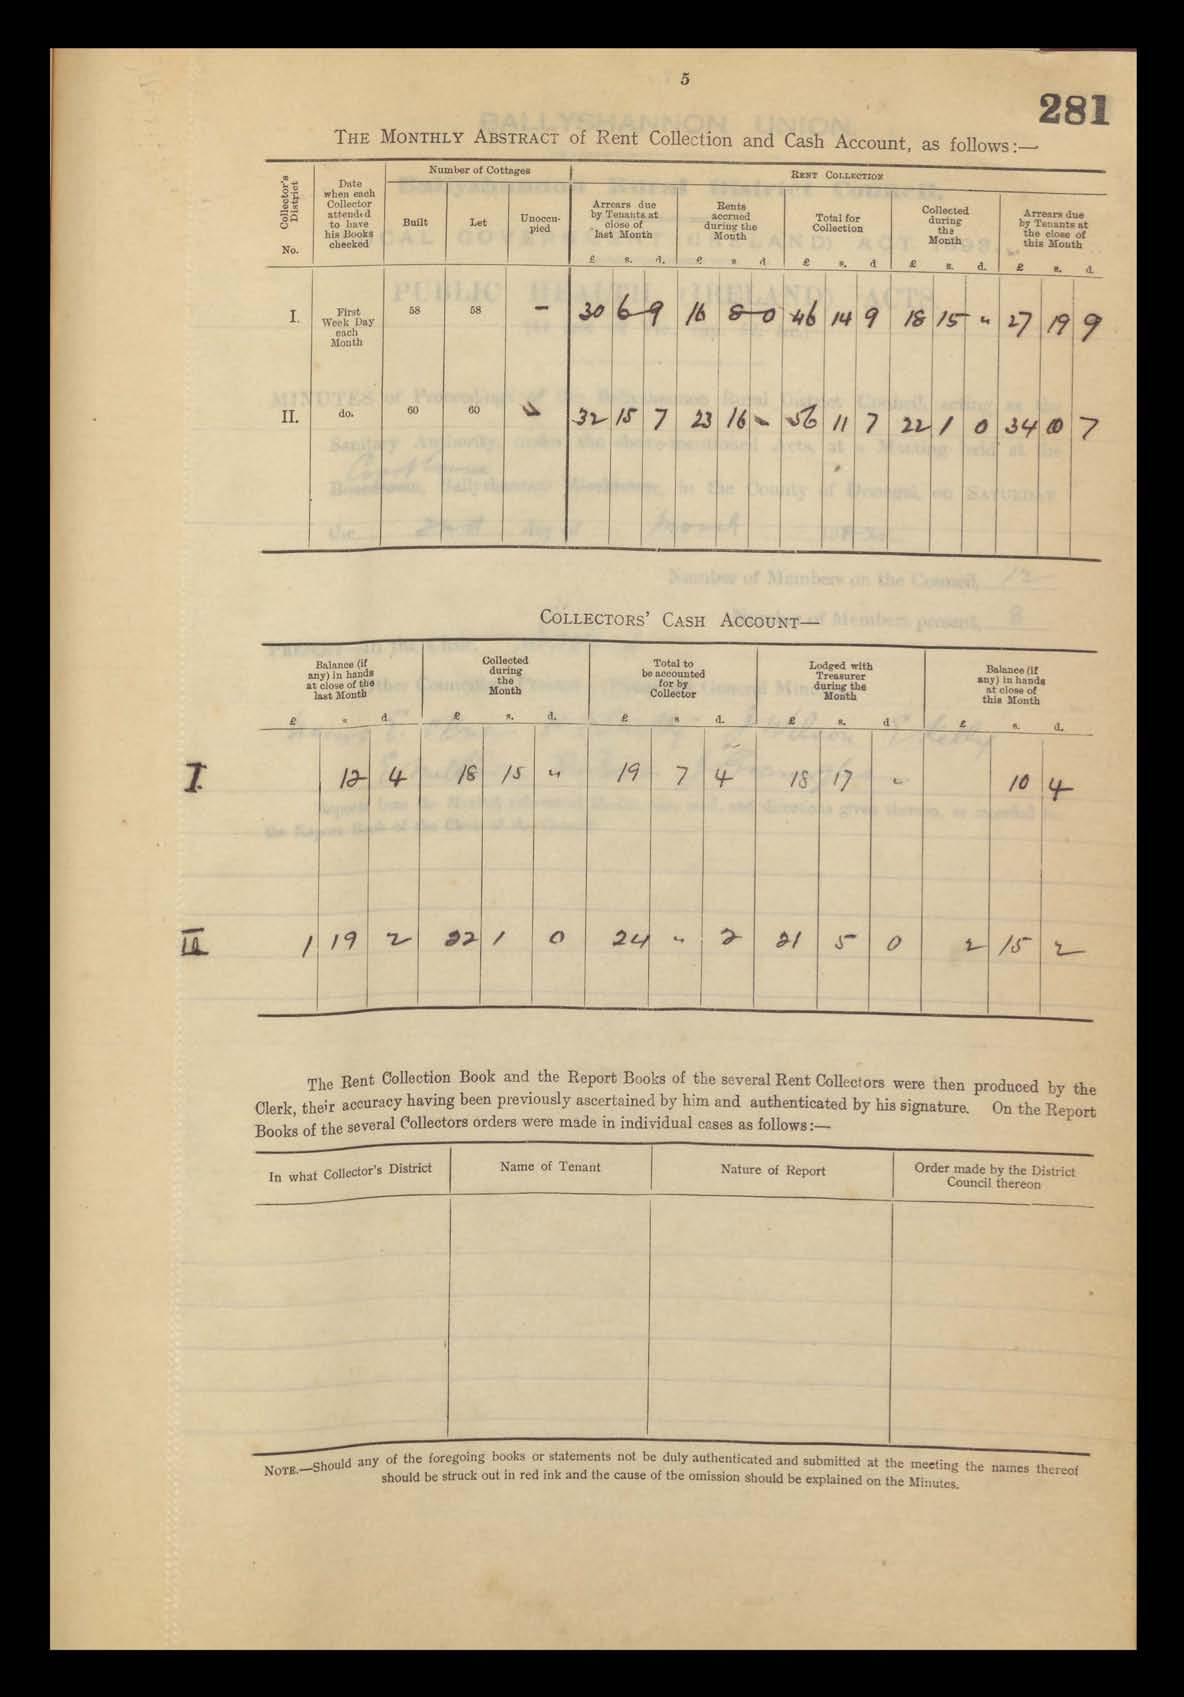 5
281
THE MONTHLY ABSTRACT of Rent Collection and Cash Account, as follows:—
Collector's District No.
Date when each Collector attended to have his Books checked
Number of Cottages
Built
Let
Unoccupied
RENT COLLECTION
Arrears due by Tenants at close of last Month
Rents accrued during the Month
Total for Collection
Collected during the Month
Arrears due by Tenants at the close of this Month
£ s. d. £ s d £ s. d £ s. d. £ s. d.
I. First Week Day each Month 58 58 – 30 6 9 16 8 0 46 14 9 18 15 " 27 19 9
II. do. 60 60 " 32 15 7 23 16 " 56 11 7 22 1 0 34 10 7
COLLECTORS' CASH ACCOUNT—
Balance (if any) in hands at close of the last Month
Collected during the Month
Total to be accounted for by Collector
Lodged with Treasurer during the Month
Balance (if any) in hands at close of this Month
£ s d £ s. d. £ s d. £ s. d £ s. d.
I. 12 4 18 15 " 19 7 4 18 17 " 10 4
II 1 19 2 22 1 0 24 " 2 21 5 0 2 15 2
The Rent Collection Book and the Report Books of the several Rent Collectors were then produced by the
Clerk, their accuracy having been previously ascertained by him and authenticated by his signature. On the Report
Books of the several Collectors orders were made in individual cases as follows:—
In what Collector's District
Name of Tenant
Nature of Report
Order made by the District Council thereon
NOTE.—Should any of the foregoing books or statements not be duly authenticated and submitted at the meeting the names thereof
should be struck out in red ink and the cause of the omission should be explained on the Minutes.